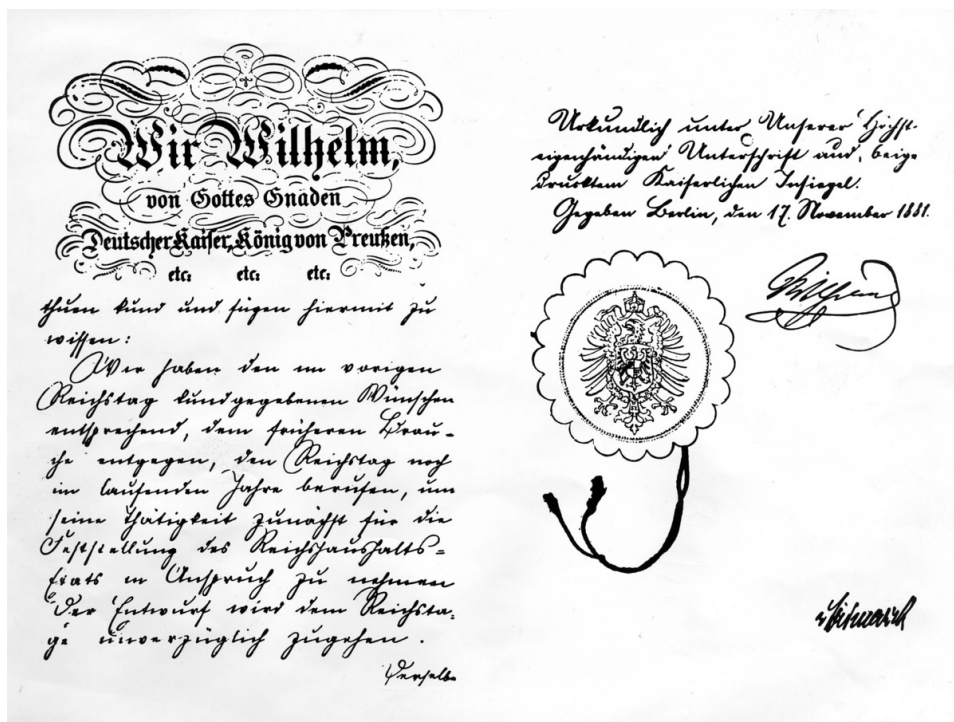 Wir Wilhelm,
von Gottes Gnaden
Deutscher Kaiser, König von Preußen,
etc. etc. etc.
thuen kund und fügen hiermit zu
wissen:
Wir haben den im vorigen
Reichstag kundgegebenen Wünschen
entsprechend, dem früheren Brau-
che entgegen, den Reichstag noch
im laufenden Jahre berufen, um
seine Thätigkeit zunächst für die
Feststellung des Reichshaushalts-
Etats in Anspruch zu nehmen
Der Entwurf wird dem Reichsta-
ge unverzüglich zugehen.
Derselbe
Urkundlich unter Unserer Höchst-
eigenhändigen Unterschrift und beige-
drucktem Kaiserlichen Insiegel.
Gegeben Berlin, den 17. November 1881.
Wilhelm
v Bismarck